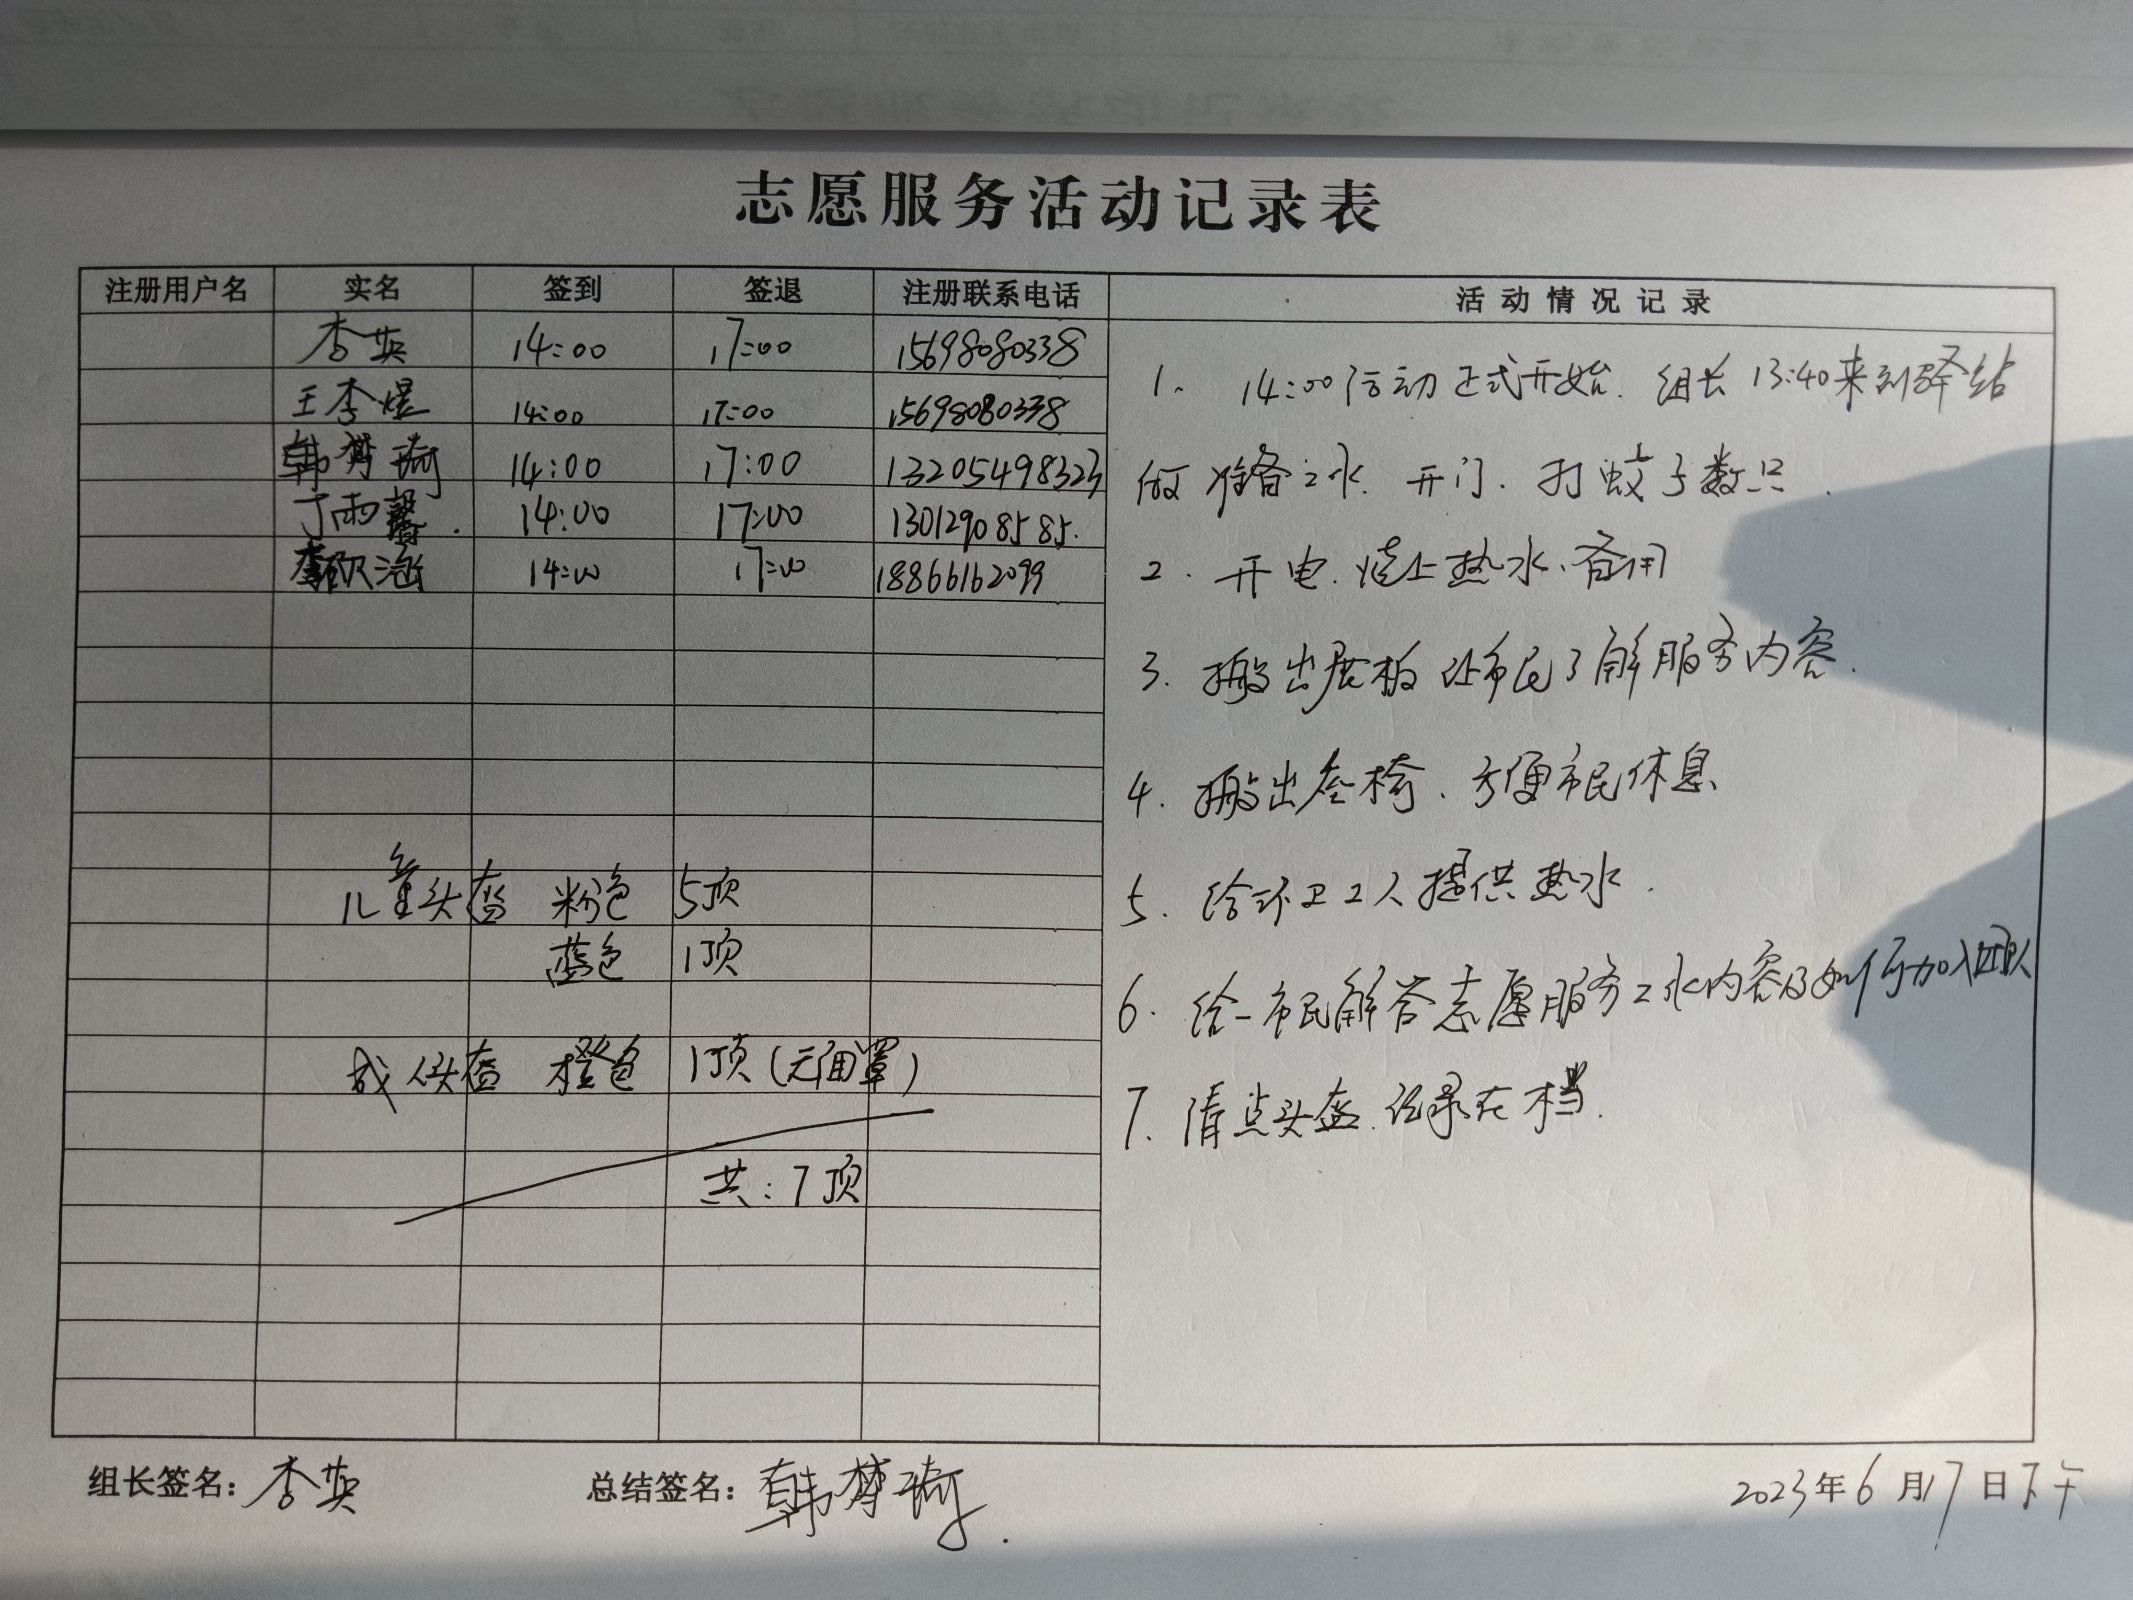 志愿服务活动记录表
注册用户名 实名 签到 签退 注册联系电话 活动情况记录
李英 14:00 17:00 15698080338
王李煜 14:00 17:00 15698080338
韩梦琦 14:00 17:00 13205498323
丁雨馨. 14:00 17:00 13012908585.
李欣涵 14:00 17:00 18866162099
儿童头盔 粉色 5顶
蓝色 1顶
成人头盔 橙色 1顶(无面罩)
共:7顶
1. 14:00活动正式开始. 组长13:40来到驿站
做准备工作. 开门. 打蚊子数只.
2. 开电. 烧上热水、备用
3. 搬出展板 让市民了解服务内容.
4. 搬出座椅、方便市民休息
5. 给环卫工人提供热水.
6. 给市民解答志愿服务工作内容及如何加入团队
7. 清点头盔. 记录在档.
组长签名:李英 总结签名:韩梦琦. 2023年6月17日下午